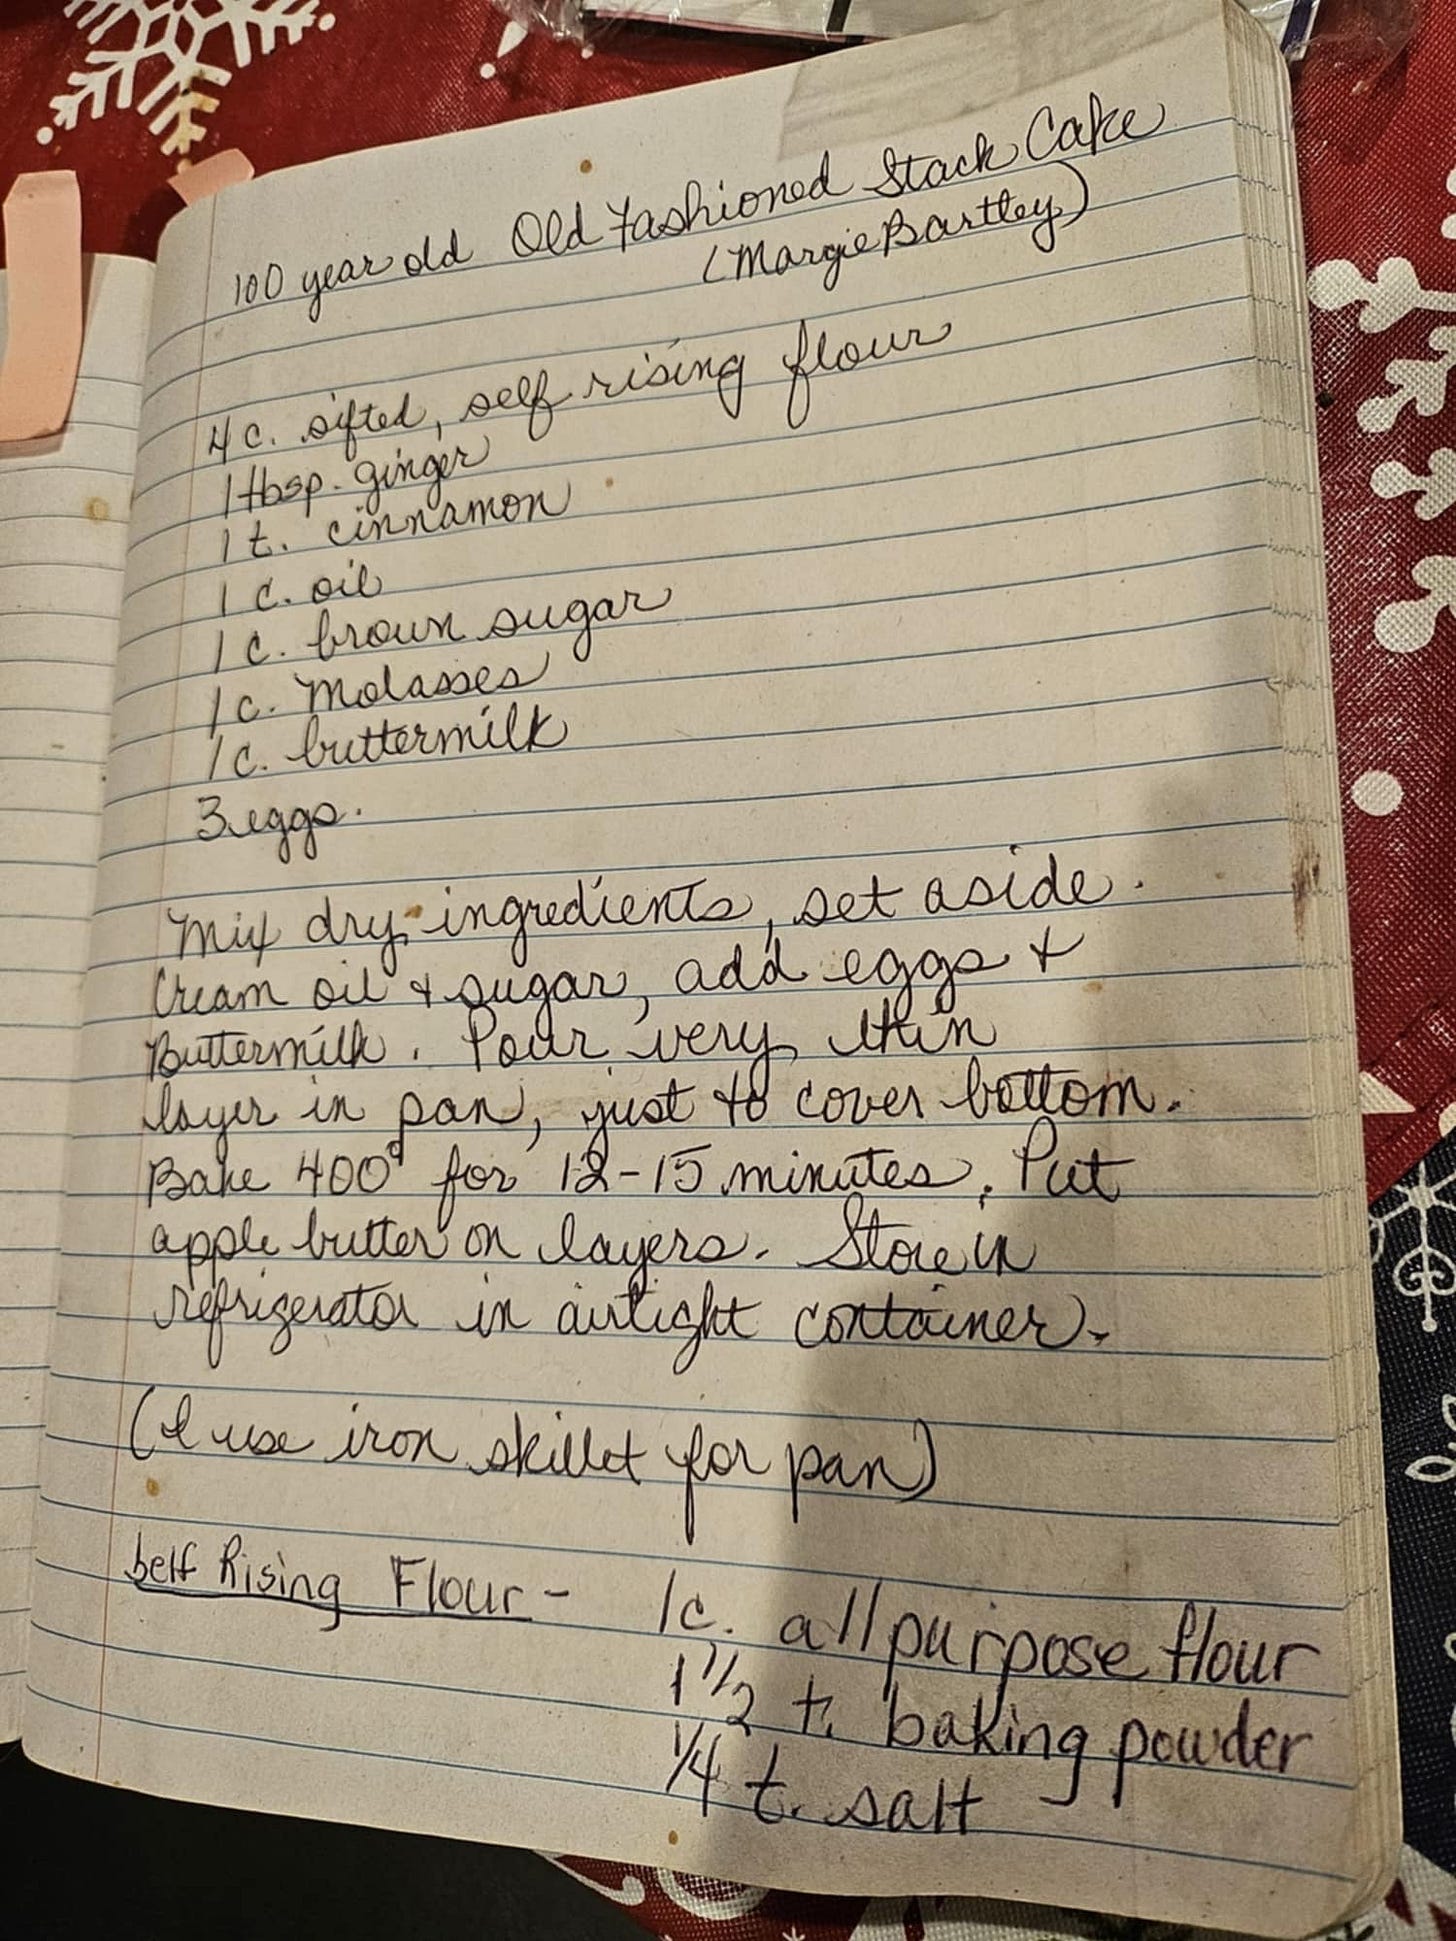 100 year old Old Fashioned Stack Cake
(Margie Bartley)
4 c. sifted, self rising flour
1 tbsp. ginger
1 t. cinnamon
1 c. oil
1 c. brown sugar
1 c. Molasses
1 c. buttermilk
3 eggs.
Mix dry ingredients, set aside.
Cream oil & sugar, add eggs &
Buttermilk. Pour very thin
layer in pan, just to cover bottom.
Bake 400° for 12-15 minutes. Put
apple butter on layers. Store in
refrigerator in airtight container.
(I use iron skillet for pan)
Self Rising Flour - 1 c. all purpose flour
1 1/2 t. baking powder
1/4 t. salt